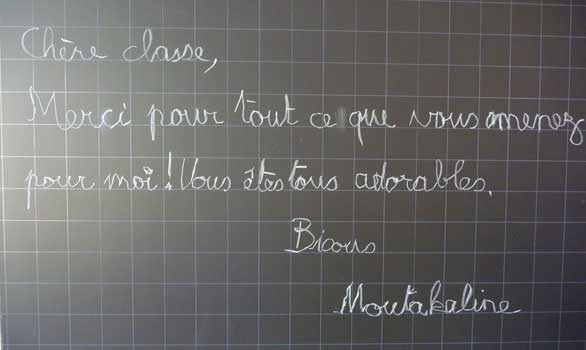 Chère classe,
Merci pour tout ce que vous amenez
pour moi! Vous êtes tous adorables.
Bisous
Moutakaline